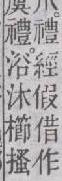 爪。禮經假借作
虞禮。浴沐櫛搔